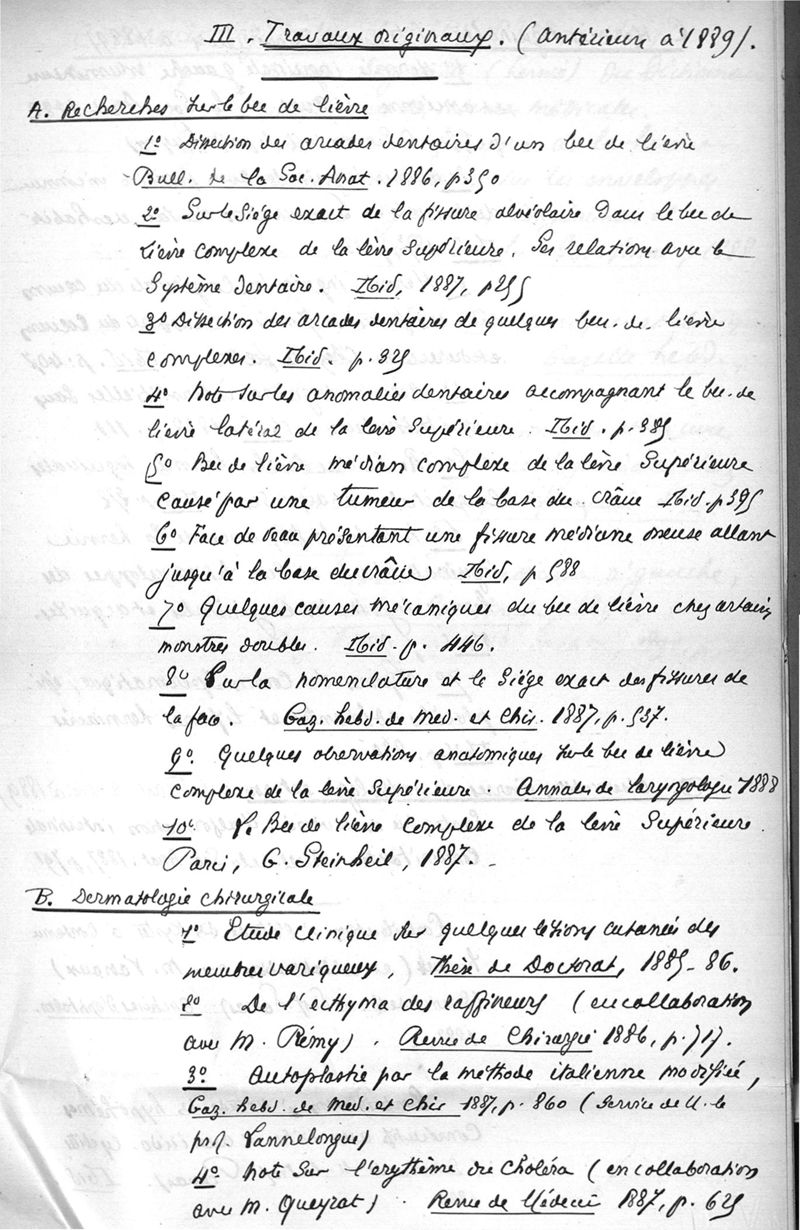 III. Travaux originaux. (Antérieurs à 1889).
A. Recherches sur le bec de lièvre
1º Dissection des arcades dentaires d'un bec de lièvre
Bull. de la Soc. Anat. 1886, p 350
2º Sur le Siège exact de la fissure alvéolaire dans le bec de
lièvre complexe de la lèvre Supérieure. Ses relations avec le
Système dentaire. Ibid, 1887, p 255
3º Dissection des arcades dentaires de quelques becs. de. lièvre
complexes. Ibid. p. 325
4º Note sur les anomalies dentaires accompagnant le bec. de
lièvre latéral de la lèvre Supérieure. Ibid. p. 385
5º Bec de lièvre médian complexe de la lèvre Supérieure
causé par une tumeur de la base du crâne Ibid. p 395
6º Face de veau présentant une fissure médiane osseuse allant
jusqu'à la base du crâne Ibid, p 588
7º Quelques causes mécaniques du bec de lièvre chez certains
monstres doubles. Ibid. p. 446.
8º Sur la nomenclature et le Siège exact des fissures de
la face. Gaz. hebd. de Med. et Chir. 1887, p. 537.
9º. Quelques observations anatomiques sur le bec de lièvre
complexe de la lèvre Supérieure. Annales de laryngologie 1888
10º. Le Bec de lièvre complexe de la lèvre Supérieure.
Paris, G. Steinheil, 1887.
B. Dermatologie chirurgicale
1º Etude clinique sur quelques lésions cutanées des
membres variqueux, Thèse de Doctorat, 1885-86.
2º De l'ecthyma des raffineurs (en collaboration
avec M. Rémy). Revue de Chirurgie 1886, p. 717.
3º Autoplastie par la méthode italienne modifiée,
Gaz. hebd. de Med. et Chir 1887, p. 860 (Service de M. le
prof. Lannelongue)
4º Note sur l'erythème du Choléra (en collaboration
avec M. Queyrat). Revue de Médecine 1887, p. 625